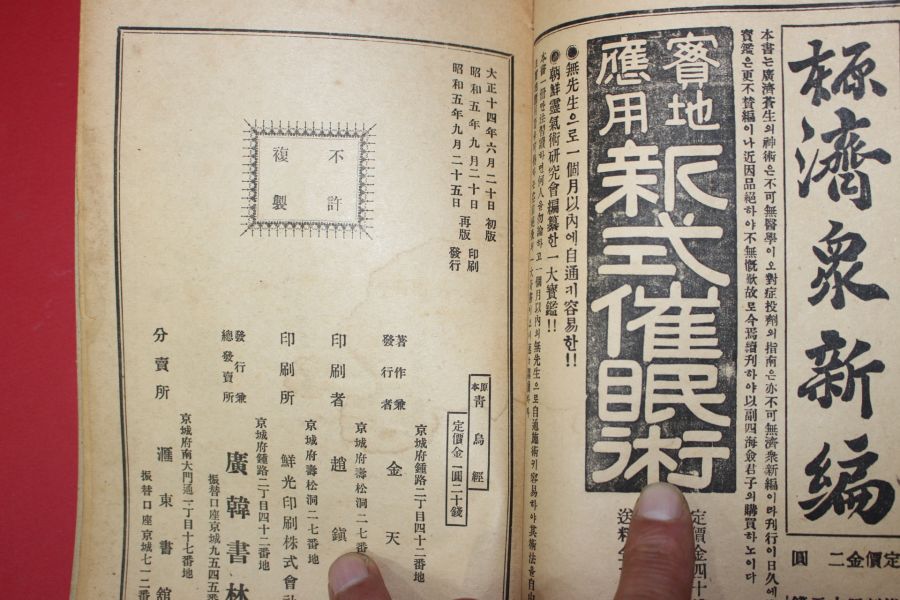 濟衆新編
本書는廣濟蒼生의神術은不可無醫學이오對症投劑의指南은亦不可無濟衆新編이라刊行이日久에
寶鑑은更不賛編이나近因品絕하야不無慨歎故로今焉續刊하야以副四海僉君子의購買하노이다
定價金二圓
實地
應用
新式催眠術
定價金四十
送料
●無先生으로一個月以內에自通키容易한!!
●朝鮮靈氣術研究會編纂한一大寶鑑!!
大正十四年六月二十日 初版
昭和五年九月二十日 再版 印刷
昭和五年九月二十五日 發行
不許
複製
原本 靑烏經
定價金一圓二十錢
京城府鍾路二丁目四十二番地
著作兼
發行者 金天
京城府壽松洞二七番地
印刷者 趙鎭
京城府壽松洞二七番地
印刷所 鮮光印刷株式會社
京城府鍾路二丁目四十二番地
發行兼
總發賣所 廣韓書林
振替口座京城九五四五番
京城府南大門通一丁目十七番地
分賣所 滙東書館
振替口座京城七一二番